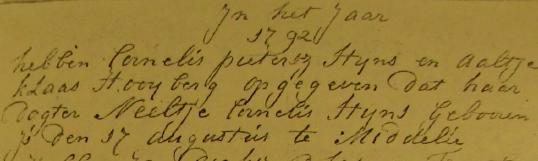 Jn het Jaar
1792
hebben Cornelis pietersz Hyns en Aaltje
klaas Hooyberg opgegeven Dat haar
Dogter Neeltje Cornelis Hyns Gebooren
is Den 17 augustus te Middelie